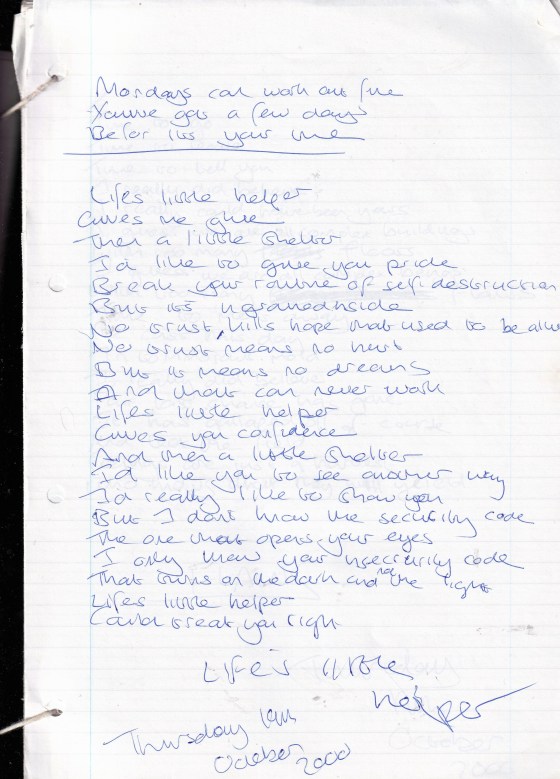 Mondays can work out fine
You've got a few days
Befor its your time
Lifes little helper
Gives me glue
Then a little shelter
I'd like to give you pride
Break your routine of self destruction
But its ingrained inside
No trust, kills hope that used to be alive
No trust means no hurt
But it means no dreams
And that can never work
Lifes little helper
Gives you confidence
And then a little shelter
I'd like you to see another way
I'd really like to show you
But I don't know the security code
The one that opens your eyes
I only know your insecurity code
That turns on the dark and not the light
Lifes little helper
Could treat you right
Life's little
helper
Thursday
October 2000